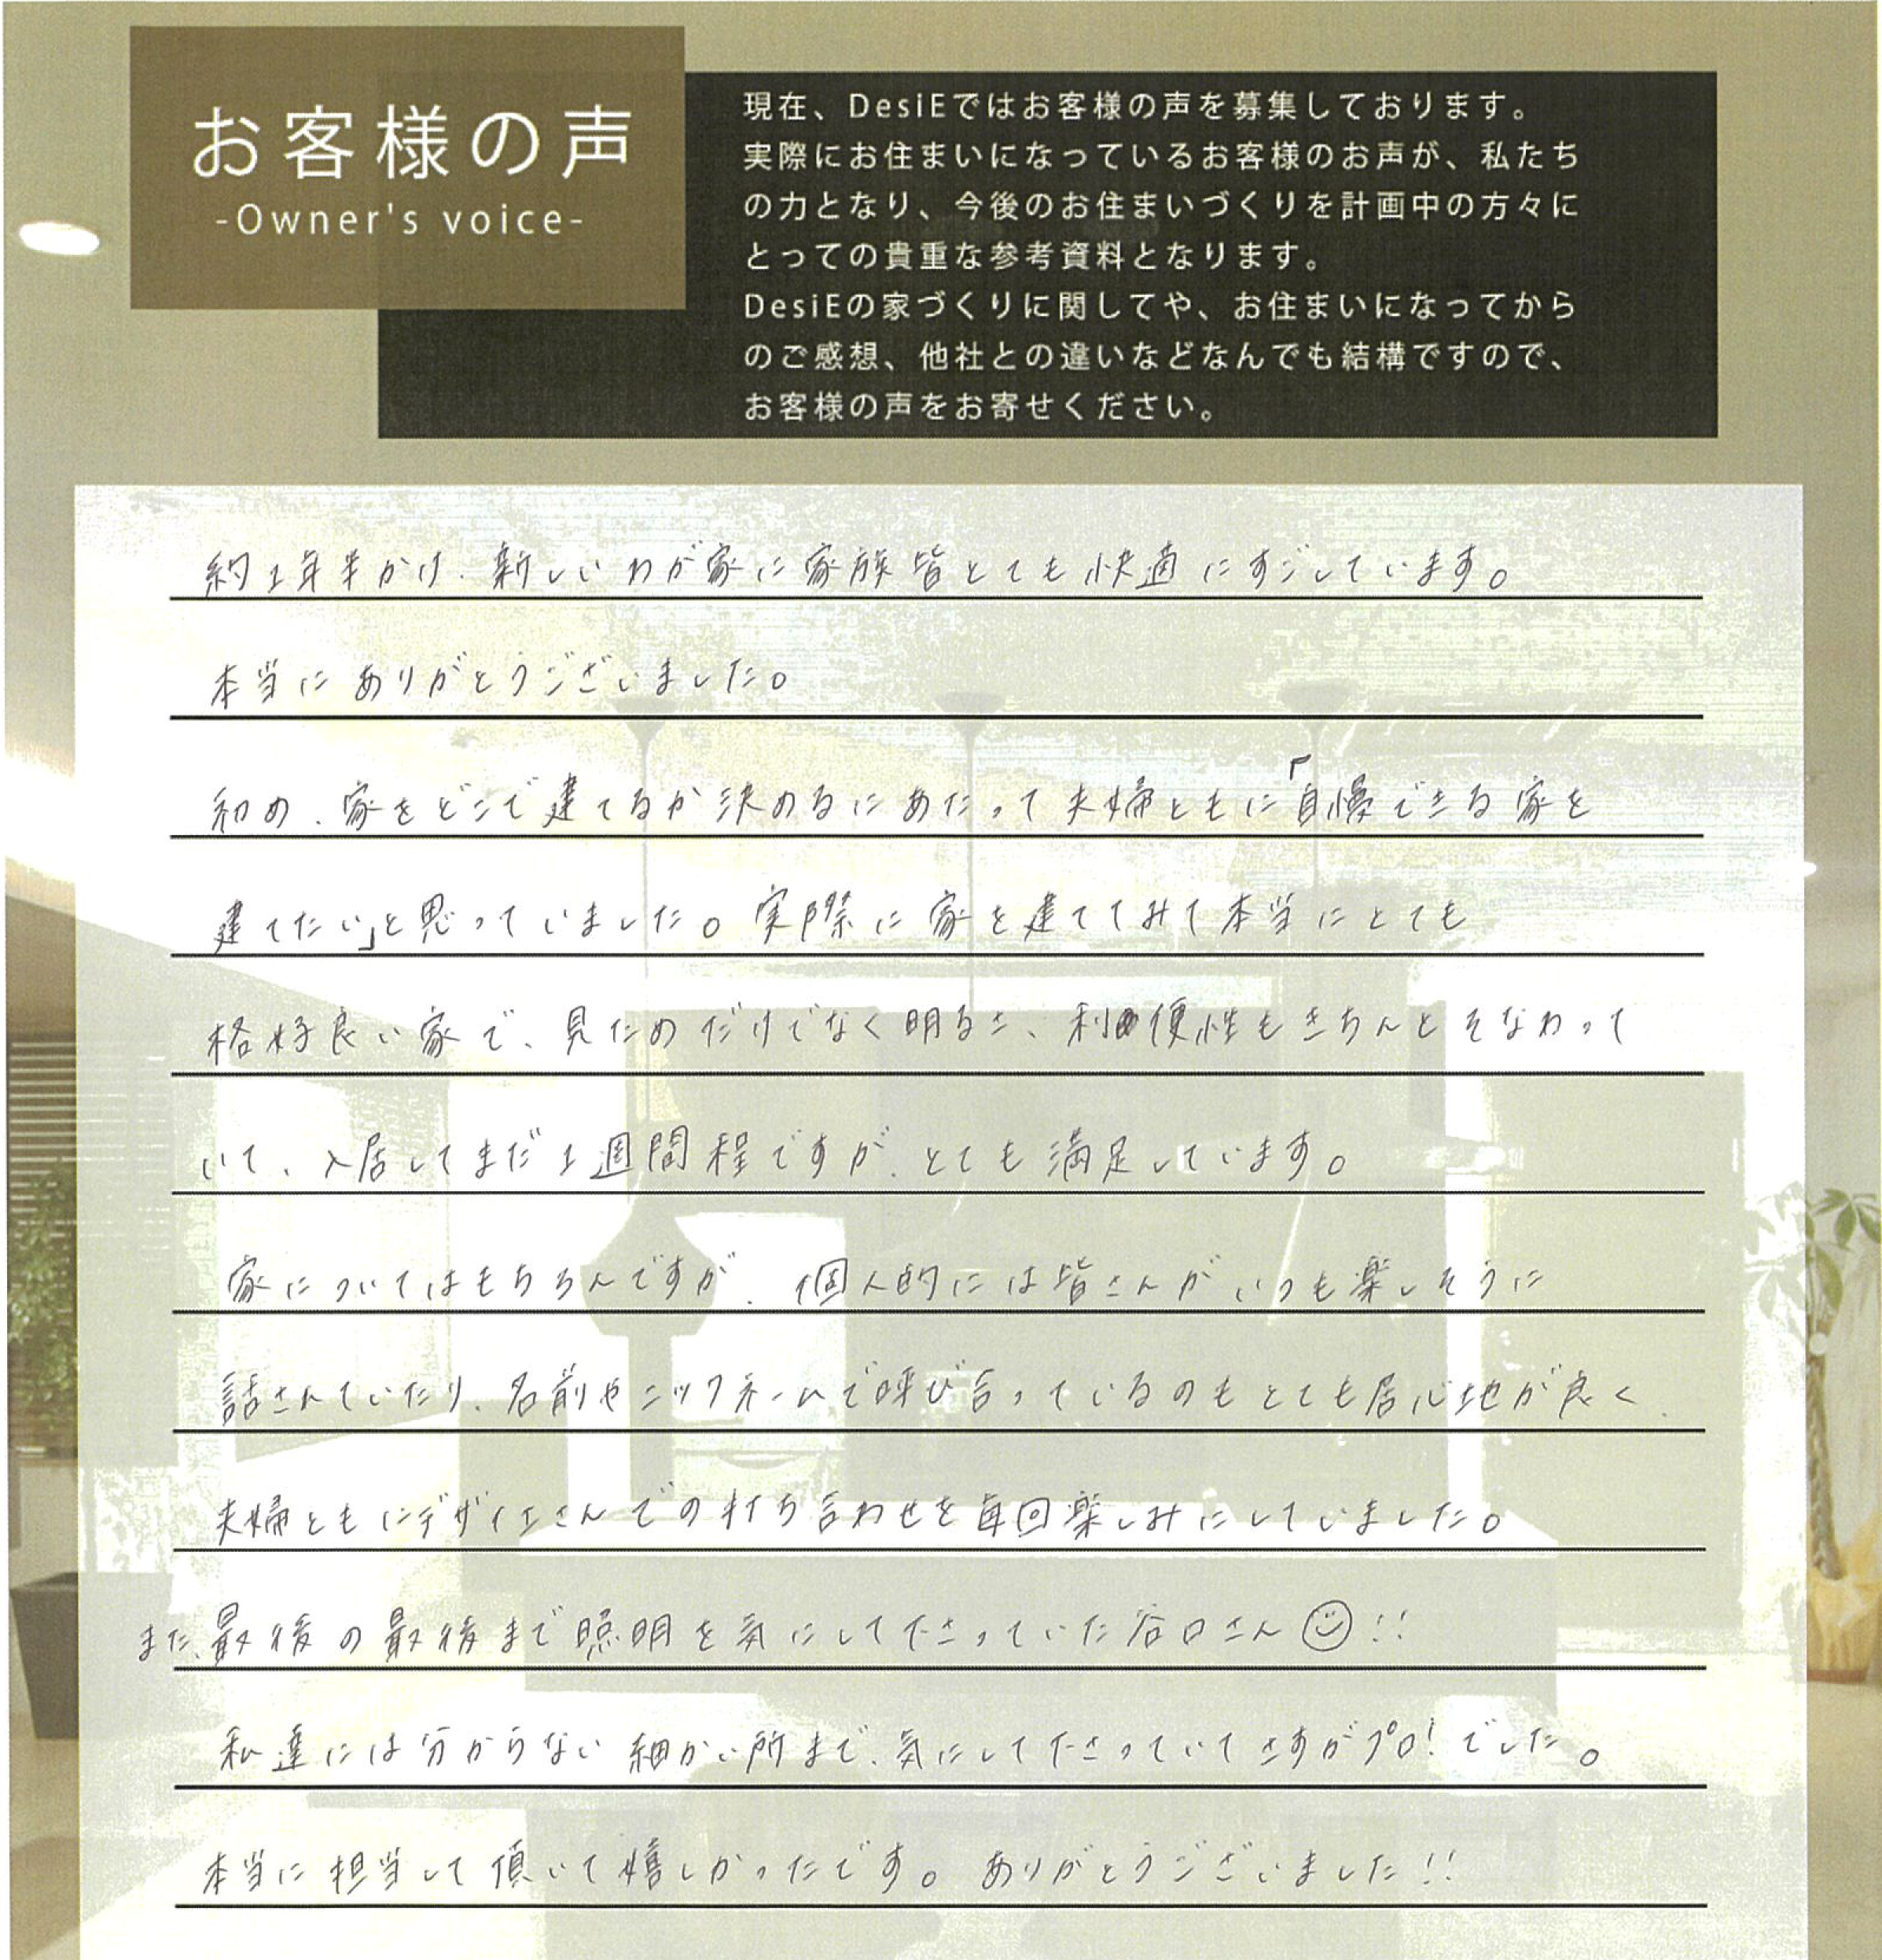 お客様の声
-Owner's voice-
現在、DesiEではお客様の声を募集しております。
実際にお住まいになっているお客様のお声が、私たち
の力となり、今後のお住まいづくりを計画中の方々に
とっての貴重な参考資料となります。
DesiEの家づくりに関してや、お住まいになってから
のご感想、他社との違いなどなんでも結構ですので、
お客様の声をお寄せください。
約1年半かけ、新しいわが家に家族皆とても快適にすごしています。
本当にありがとうございました。
初め、家をどこで建てるか決めるにあたって夫婦ともに「自慢できる家を
建てたい」と思っていました。実際に家を建ててみて本当にとても
格好良い家で、見ためだけでなく明るさ、利便性もきちんとそなわって
いて、入居してまだ1週間程ですが、とても満足しています。
家についてはもちろんですが、個人的には皆さんがいつも楽しそうに
話されていたり、名前やニックネームで呼び合っているのもとても居心地が良く、
夫婦ともにデザイエさんでの打ち合わせを毎回楽しみにしていました。
また、最後の最後まで照明を気にして下さっていた谷口さん☺!!
私達には分からない細かい所まで、気にして下さっていてさすがプロ!でした。
本当に担当して頂いて嬉しかったです。ありがとうございました!!